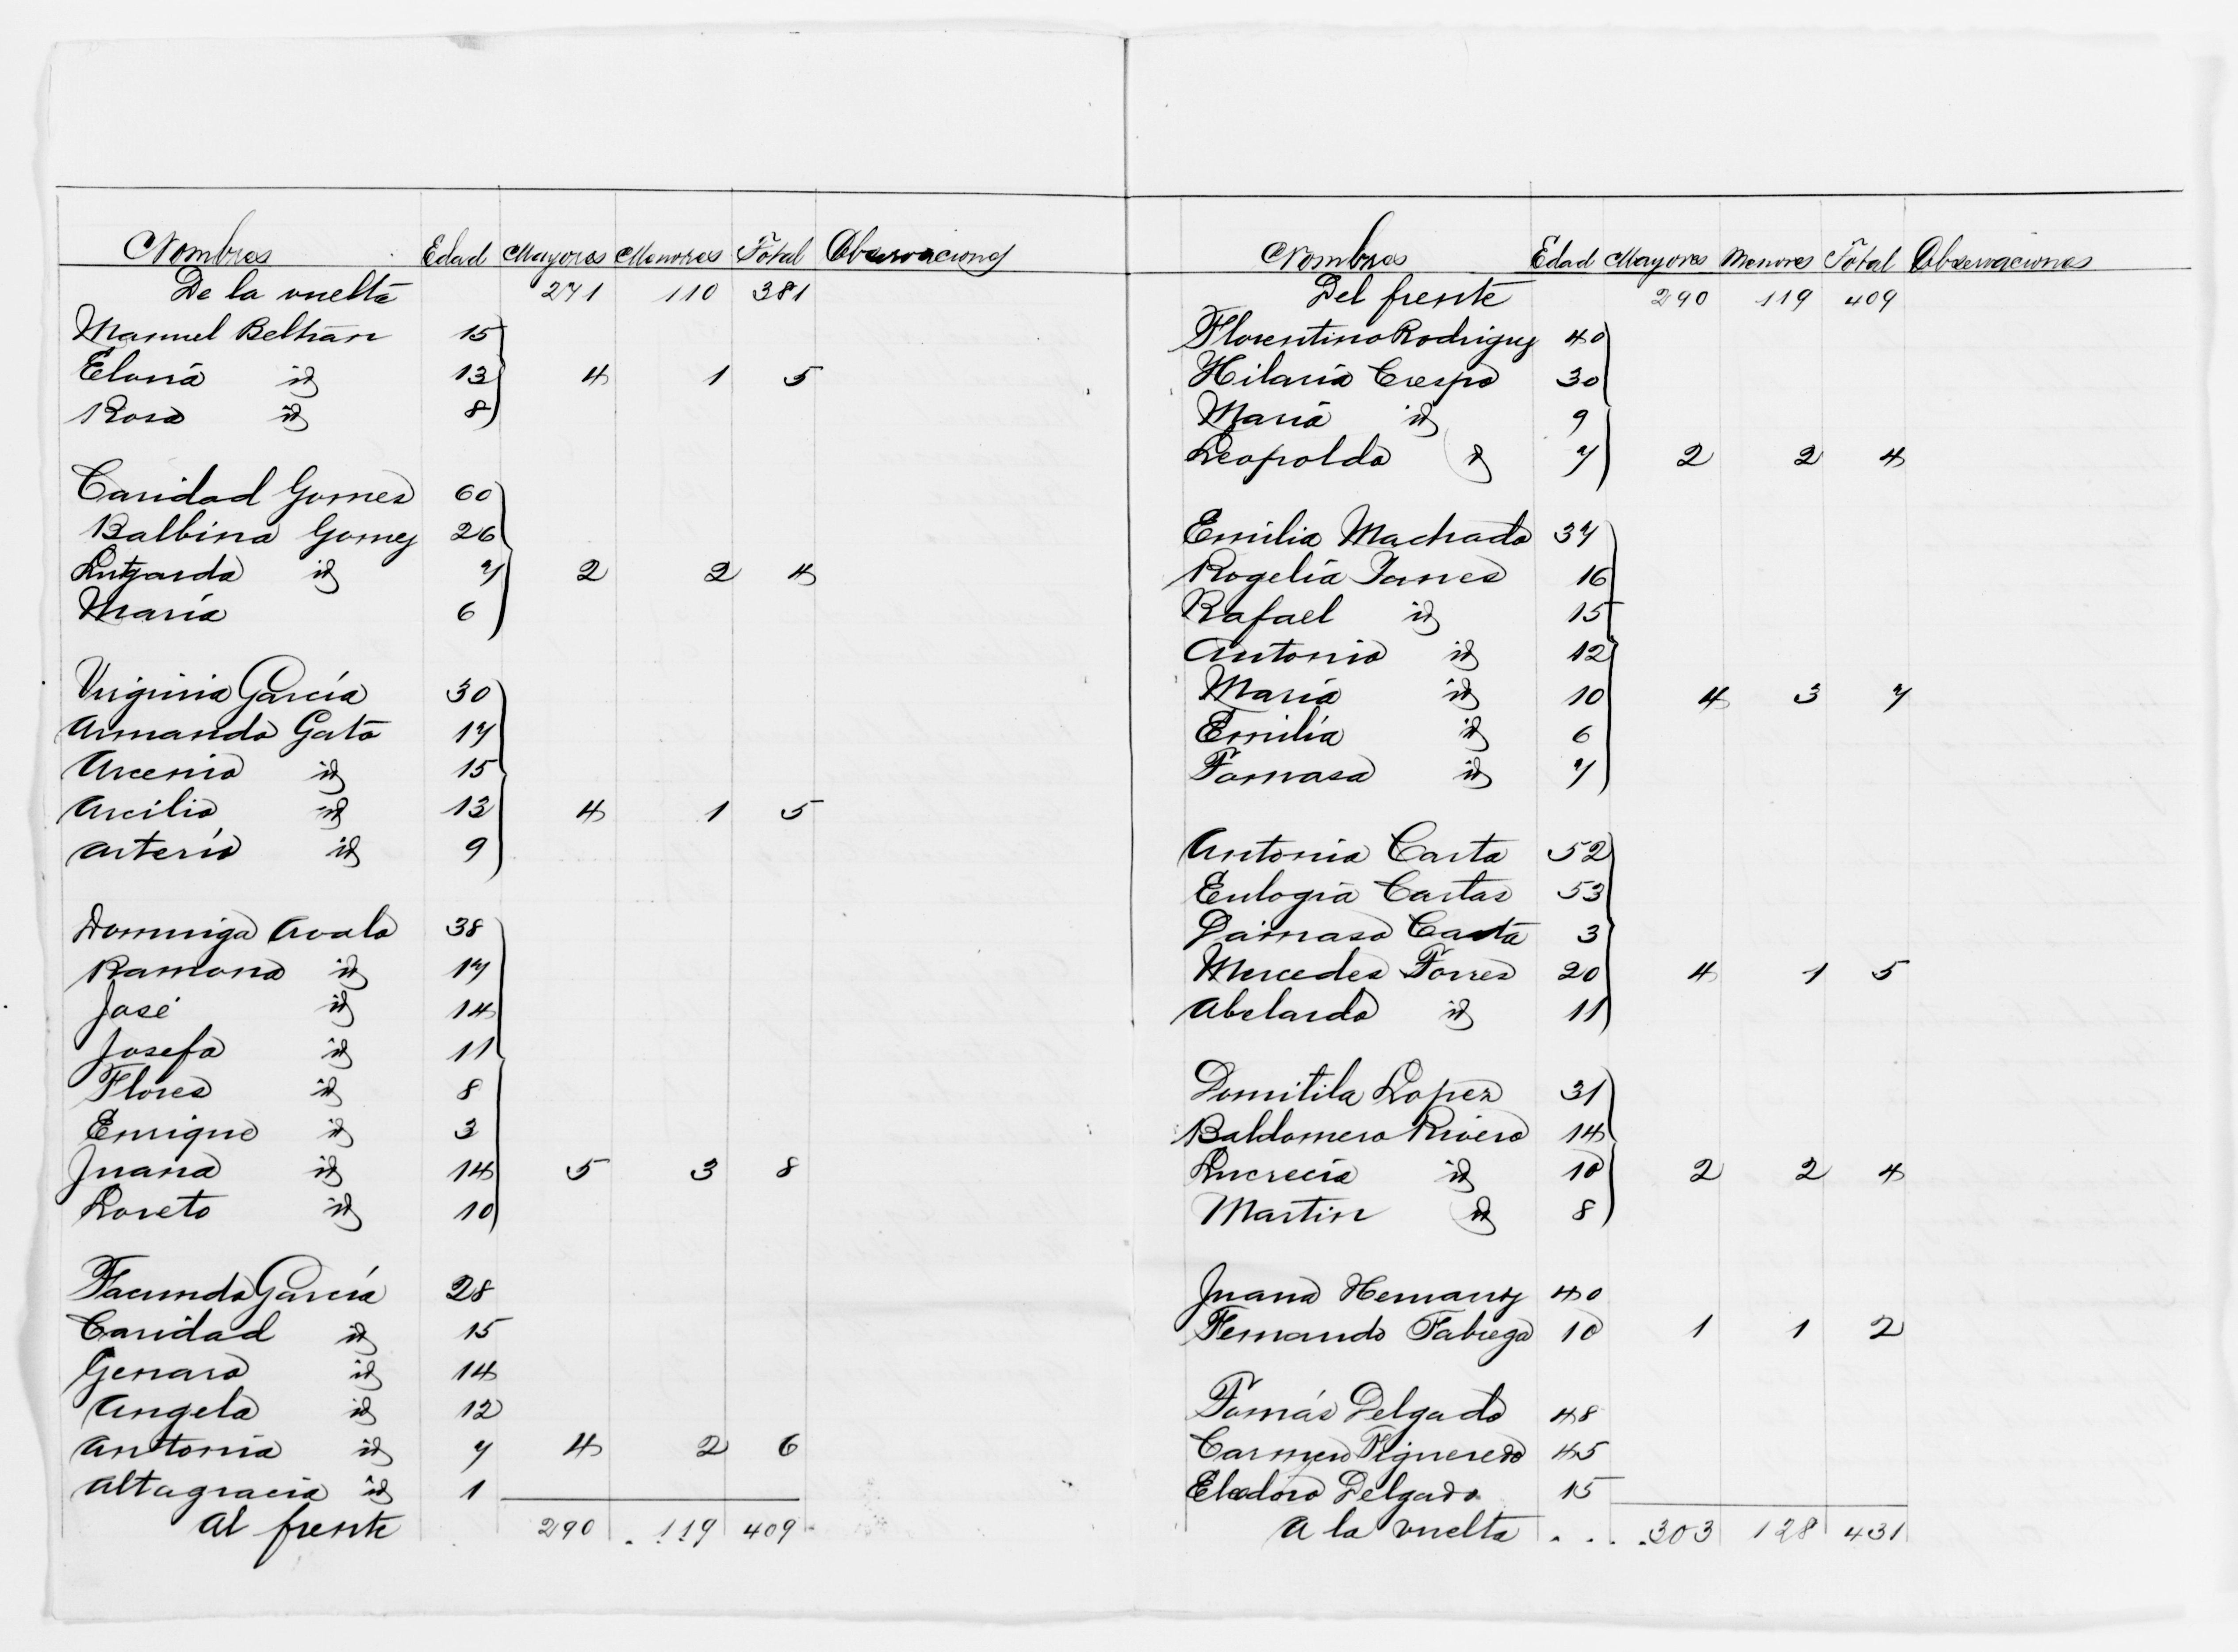 Nombres Edad Mayores Menores Total Observaciones
De la vuelta 271 110 381
Manuel Beltran 15
Eloria id 13 4 1 5
Rosa id 8
Caridad Gomes 60
Balbina Gomez 26
Lutgarda id 7 2 2 4
María 6
Virginia García 30
Armando Gato 17
Arcenio id 15
Arcilio id 13 4 1 5
Arterio id 9
Dominiga Avalo 38
Ramona id 17
José id 14
Josefa id 11
Flores id 8
Enrique id 3
Juana id 14 5 3 8
Loreto id 10
Facunda García 28
Caridad id 15
Genaro id 14
Angela id 12
Antonia id 7 4 2 6
Altagracia id 1
Al frente 290 119 409
Nombres Edad Mayores Menores Total Observaciones
Del frente 290 119 409
Florentino Rodriguez 40
Hilaria Crespo 30
Maria id 9
Leopoldo id 7 2 2 4
Emilia Machado 37
Rogelia Torres 16
Rafael id 15
Antonio id 12
Maria id 10 4 3 7
Emilia id 6
Tomasa id 7
Antonia Carta 52
Eulogia Cartas 53
Damaso Carta 3
Mercedes Torres 20 4 1 5
Abelardo id 11
Domitila Lopez 31
Baldomero Rivero 14
Lucrecia id 10 2 2 4
Martin id 8
Juana Hernanz 40
Fernando Fabrega 10 1 1 2
Tomás Delgado 48
Carmen Figueredo 45
Eleodoro Delgado 15
A la vuelta . . . 303 128 431